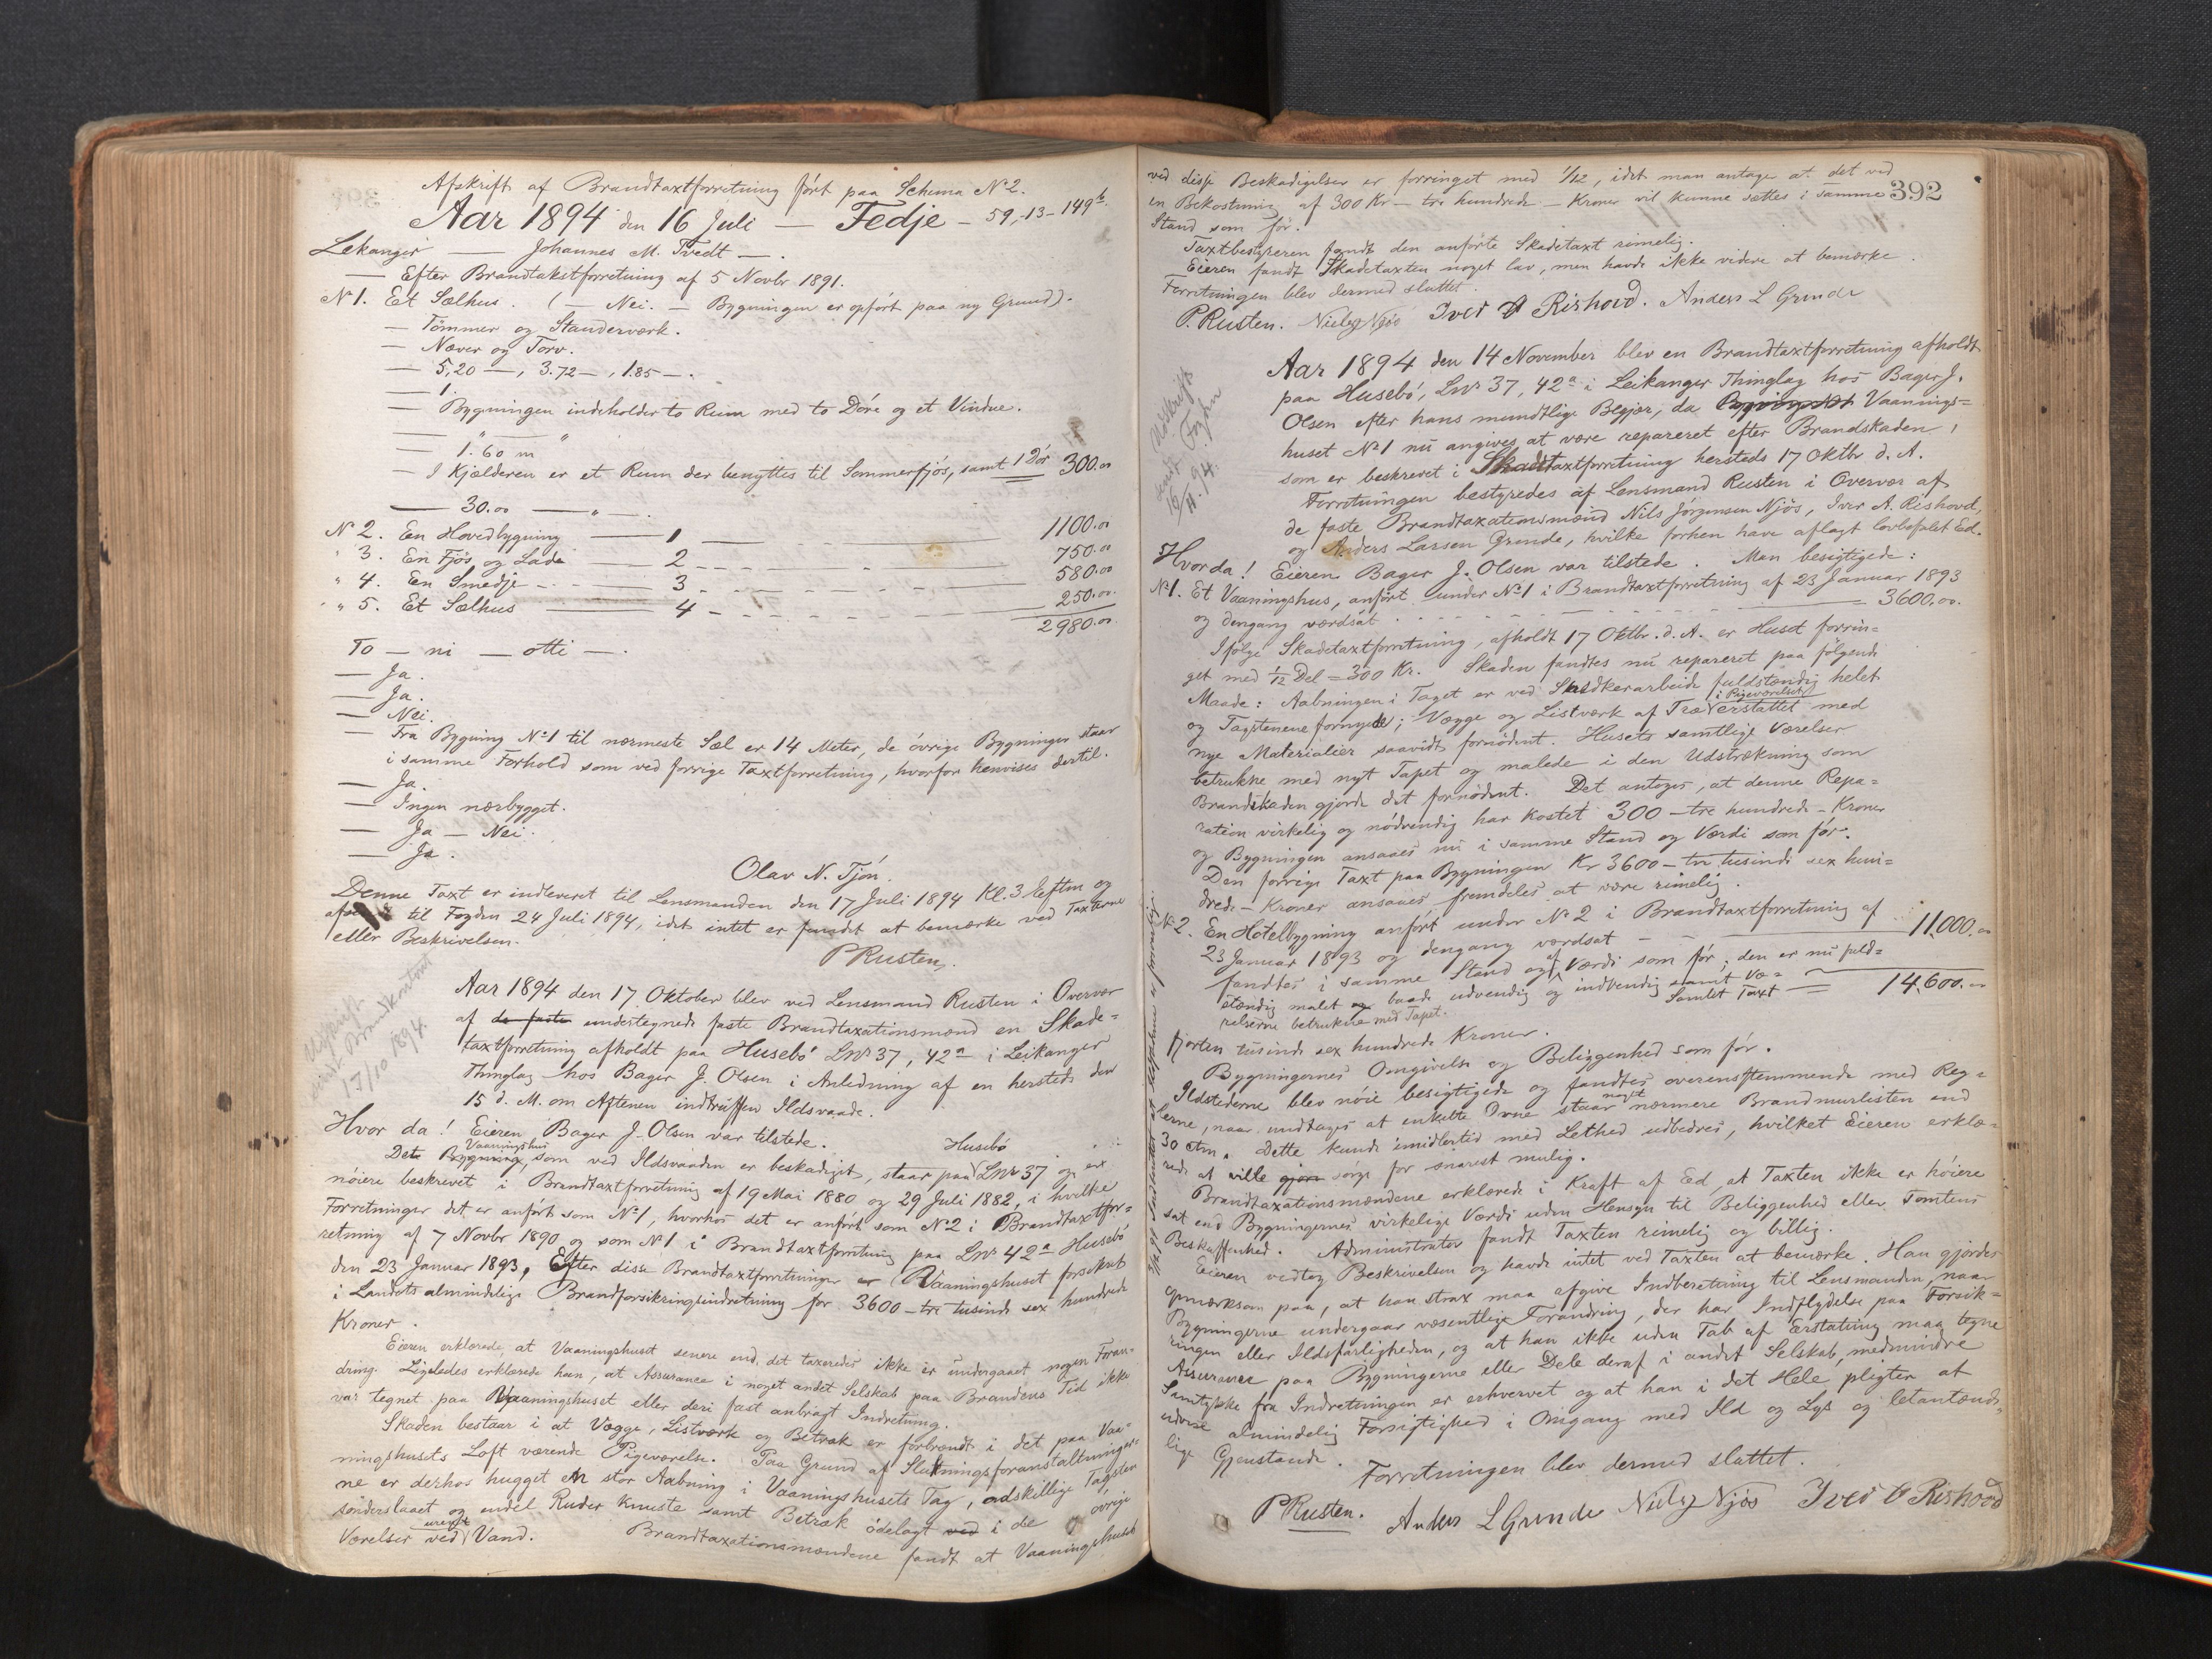 Afskrift af Brandtaxtforretning ført paa Schema No 2.
Aar 1894 den 16 Juli — Fedje — 59,-13-149b.
Lekanger — Johannes M. Tvedt —.
— Efter Brandtakstforretning af 5 Novbr 1891.
No 1. Et Sælhus. (— Nei. — Bygningen er opført paa ny Grund).
— Tømmer og Standerværk.
— Næver og Torv.
— 5,20 —, 3.72 —, 1.85 —.
— 1.
— Bygningen indeholder to Rum med to Døre og et Vindue.
— " — "
— 1.60 m
— I Kjælderen er et Rum der benyttes til Sommerfjøs, samt 1 Dør 300.00
— 30.00 — " —.
No 2. En Hovedbygning — 1 — 1100.00
" 3. En Fjøs og Lade — 2 — 750.00
" 4. En Smedje — 3 — 580.00
" 5. Et Sælhus — 4 — 250.00
2980.00
To — ni — otti —.
— Ja.
— Ja.
— Nei.
— Fra Bygning No 1 til nærmeste Sæl er 14 Meter, de øvrige Bygninger staar
i samme Forhold som ved forrige Taxtforretning, hvorfor henvises dertil.
— Ja.
— Ingen nærbygget.
— Ja — Nei.
— Ja.
Olav N. Tjøn.
Denne Taxt er indleveret til Lensmanden den 17 Juli 1894 Kl. 3 Eftm og
til Fogden 24 Juli 1894, idet intet er fundet at bemærke ved Taxterne
eller Beskrivelsen.
P Rusten.
Udskrift
sendt Brandkontoret
17/10 1894.
Aar 1894 den 17 Oktober blev ved Lensmand Rusten i Overvær
af de faste undertegnede faste Brandtaxationsmænd en Skade-
taxtforretning afholdt paa Husebø Lnr 37, 42a i Leikanger
Thinglag hos Bager J. Olsen i Anledning af en hersteds den
15 d. M. om Aftenen indtruffen Ildsvaade.
Hvor da! Eieren Bager J. Olsen var tilstede.
Vaaningshus Husebø
Dets Bygning, som ved Ildsvaaden er beskadiget, staar paa Lnr 37 og er
nøiere beskrevet i Brandtaxtforretning af 19 Mai 1880 og 29 Juli 1882, i hvilke
Forretninger det er anført som No 1, hvorhos det er anført som No 2 i Brandtaxtfor-
retning af 7 Novbr 1890 og som No 1 i Brandtaxtforretning paa Lnr 42a Husebø
den 23 Januar 1893. Efter disse Brandtaxtforretninger er Vaaningshuset forsikret
i Landets almindelige Brandforsikringsindretning for 3600 — tre tusinde sex hundrede
Kroner.
Eieren erklærede, at Vaaningshuset senere end det taxeredes ikke er undergaaet nogen Foran-
dring. Ligeledes erklærede han, at Assurance i noget andet Selskab paa Brandens Tid ikke
var tegnet paa Vaaningshuset eller deri fast anbragt Indretning.
Skaden bestaar i at Vægge, Listværk og Betræk er forbrændt i det paa Vaa-
ningshusets Loft værende Pigeværelse. Paa Grund af Slukningsforanstaltninger-
ne er derhos hugget en stor Aabning i Vaaningshusets Tag, adskillige Tagsten
sønderslaaet og endel Ruder knuste samt Betræk ødelagt ved i de øvrige
Værelser ved urent Vand. Brandtaxationsmændene fandt at Vaaningshuset
392
ved disse Beskadigelser er forringet med 1/12, idet man antager at det ved
en Bekostning af 300 Kr — tre hundrede — Kroner vil kunne sættes i samme
Stand som før.
Taxtbestyreren fandt den anførte Skadetaxt rimelig.
Eieren fandt Skadetaxten noget lav, men havde ikke videre at bemærke.
Forretningen blev dermed sluttet.
P. Rusten. Niels Njøs Iver A Rishovd. Anders L Grinde
Udskrift
sendt Fogden
16/11 94.
Aar 1894 den 14 November blev en Brandtaxtforretning afholdt
paa Husebø, Lnr 37, 42a i Leikanger Thinglag hos Bager J.
Olsen efter hans mundtlige Begjær, da Bygningen Vaanings-
huset No 1 nu angives at være repareret efter Brandskaden,
som er beskrevet i Skadetaxtforretning hersteds 17 Oktbr d. A.
Forretningen bestyredes af Lensmand Rusten i Overvær af
de faste Brandtaxationsmænd Nils Jørgensen Njøs, Iver A. Rishovd,
og Anders Larsen Grinde, hvilke forhen have aflagt lovbefalet Ed.
Hvor da! Eieren Bager J. Olsen var tilstede. Man besigtigede:
No 1. Et Vaaningshus, anført under No 1 i Brandtaxtforretning af 23 Januar 1893
og dengang værdsat — 3600.00.
Ifølge Skadetaxtforretning, afholdt 17 Oktbr. d. A. er Huset forrin-
get med 1/12 Del = 300 Kr. Skaden fandtes nu repareret paa følgende
Maade: Aabningen i Taget er ved Snedkerarbeide fuldstændig helet
og Tagstenene fornyede; Vægge og Listværk af Træ i Pigeværelset erstattet med
nye Materialier saavidt fornødent. Husets samtlige Værelser
betrukne med nyt Tapet og malede i den Udstrækning som
Brandskaden gjorde det fornødent. Det antoges, at denne Repa-
ration virkelig og nødvendig har kostet 300 — tre hundrede — Kroner
og Bygningen ansaaes nu i samme Stand og Værdi som før.
Den forrige Taxt paa Bygningen Kr 3600 — tre tusinde sex hun-
drede — Kroner ansaaes fremdeles at være rimelig.
No 2. En Hotelbygning anført under No 2 i Brandtaxtforretning af
23 Januar 1893 og dengang værdsat — 11,000.00
fandtes i samme Stand og af Værdi som før; den er nu fuld-
stændig malet og baade udvendig og indvendig samt Væ-
relserne betrukne med Tapet. Samlet Taxt — 14,600.00
fjorten tusinde sex hundrede Kroner.
Bygningernes Omgivelse og Beliggenhed som før.
Ildstederne blev nøie besigtigede og fandtes overensstemmende med Reg-
lerne, naar undtages at enkelte Ovne staar noget nærmere Brandmurlisten end
30 ctm. Dette kunde imidlertid med Lethed udbedres, hvilket Eieren erklæ-
rede at ville gjøre sørge for snarest mulig.
Brandtaxationsmændene erklærede i Kraft af Ed at Taxten ikke er høiere
sat end Bygningernes virkelige Værdi uden Hensyn til Beliggenhed eller Tomtens
Beskaffenhed. Administrator fandt Taxten rimelig og billig.
Eieren vedtog Beskrivelsen og havde intet ved Taxten at bemærke. Han gjordes
opmærksom paa, at han strax maa afgive Indberetning til Lensmanden, naar
Bygningerne undergaar væsentlige Forandring, der har Indflydelse paa Forsik-
ringen eller Ildsfarligheden, og at han ikke uden Tab af Erstatning maa tegne
Assurance paa Bygningerne eller Dele deraf i andet Selskab, medmindre
Samtykke fra Indretningen er erhvervet og at han i det Hele pligter at
udvise almindelig Forsigtighed i Omgang med Ild og Lys og letantænde-
lige Gjenstande.
Forretningen blev dermed sluttet.
P Rusten. Anders L Grinde Niels Njøs Iver A Rishovd